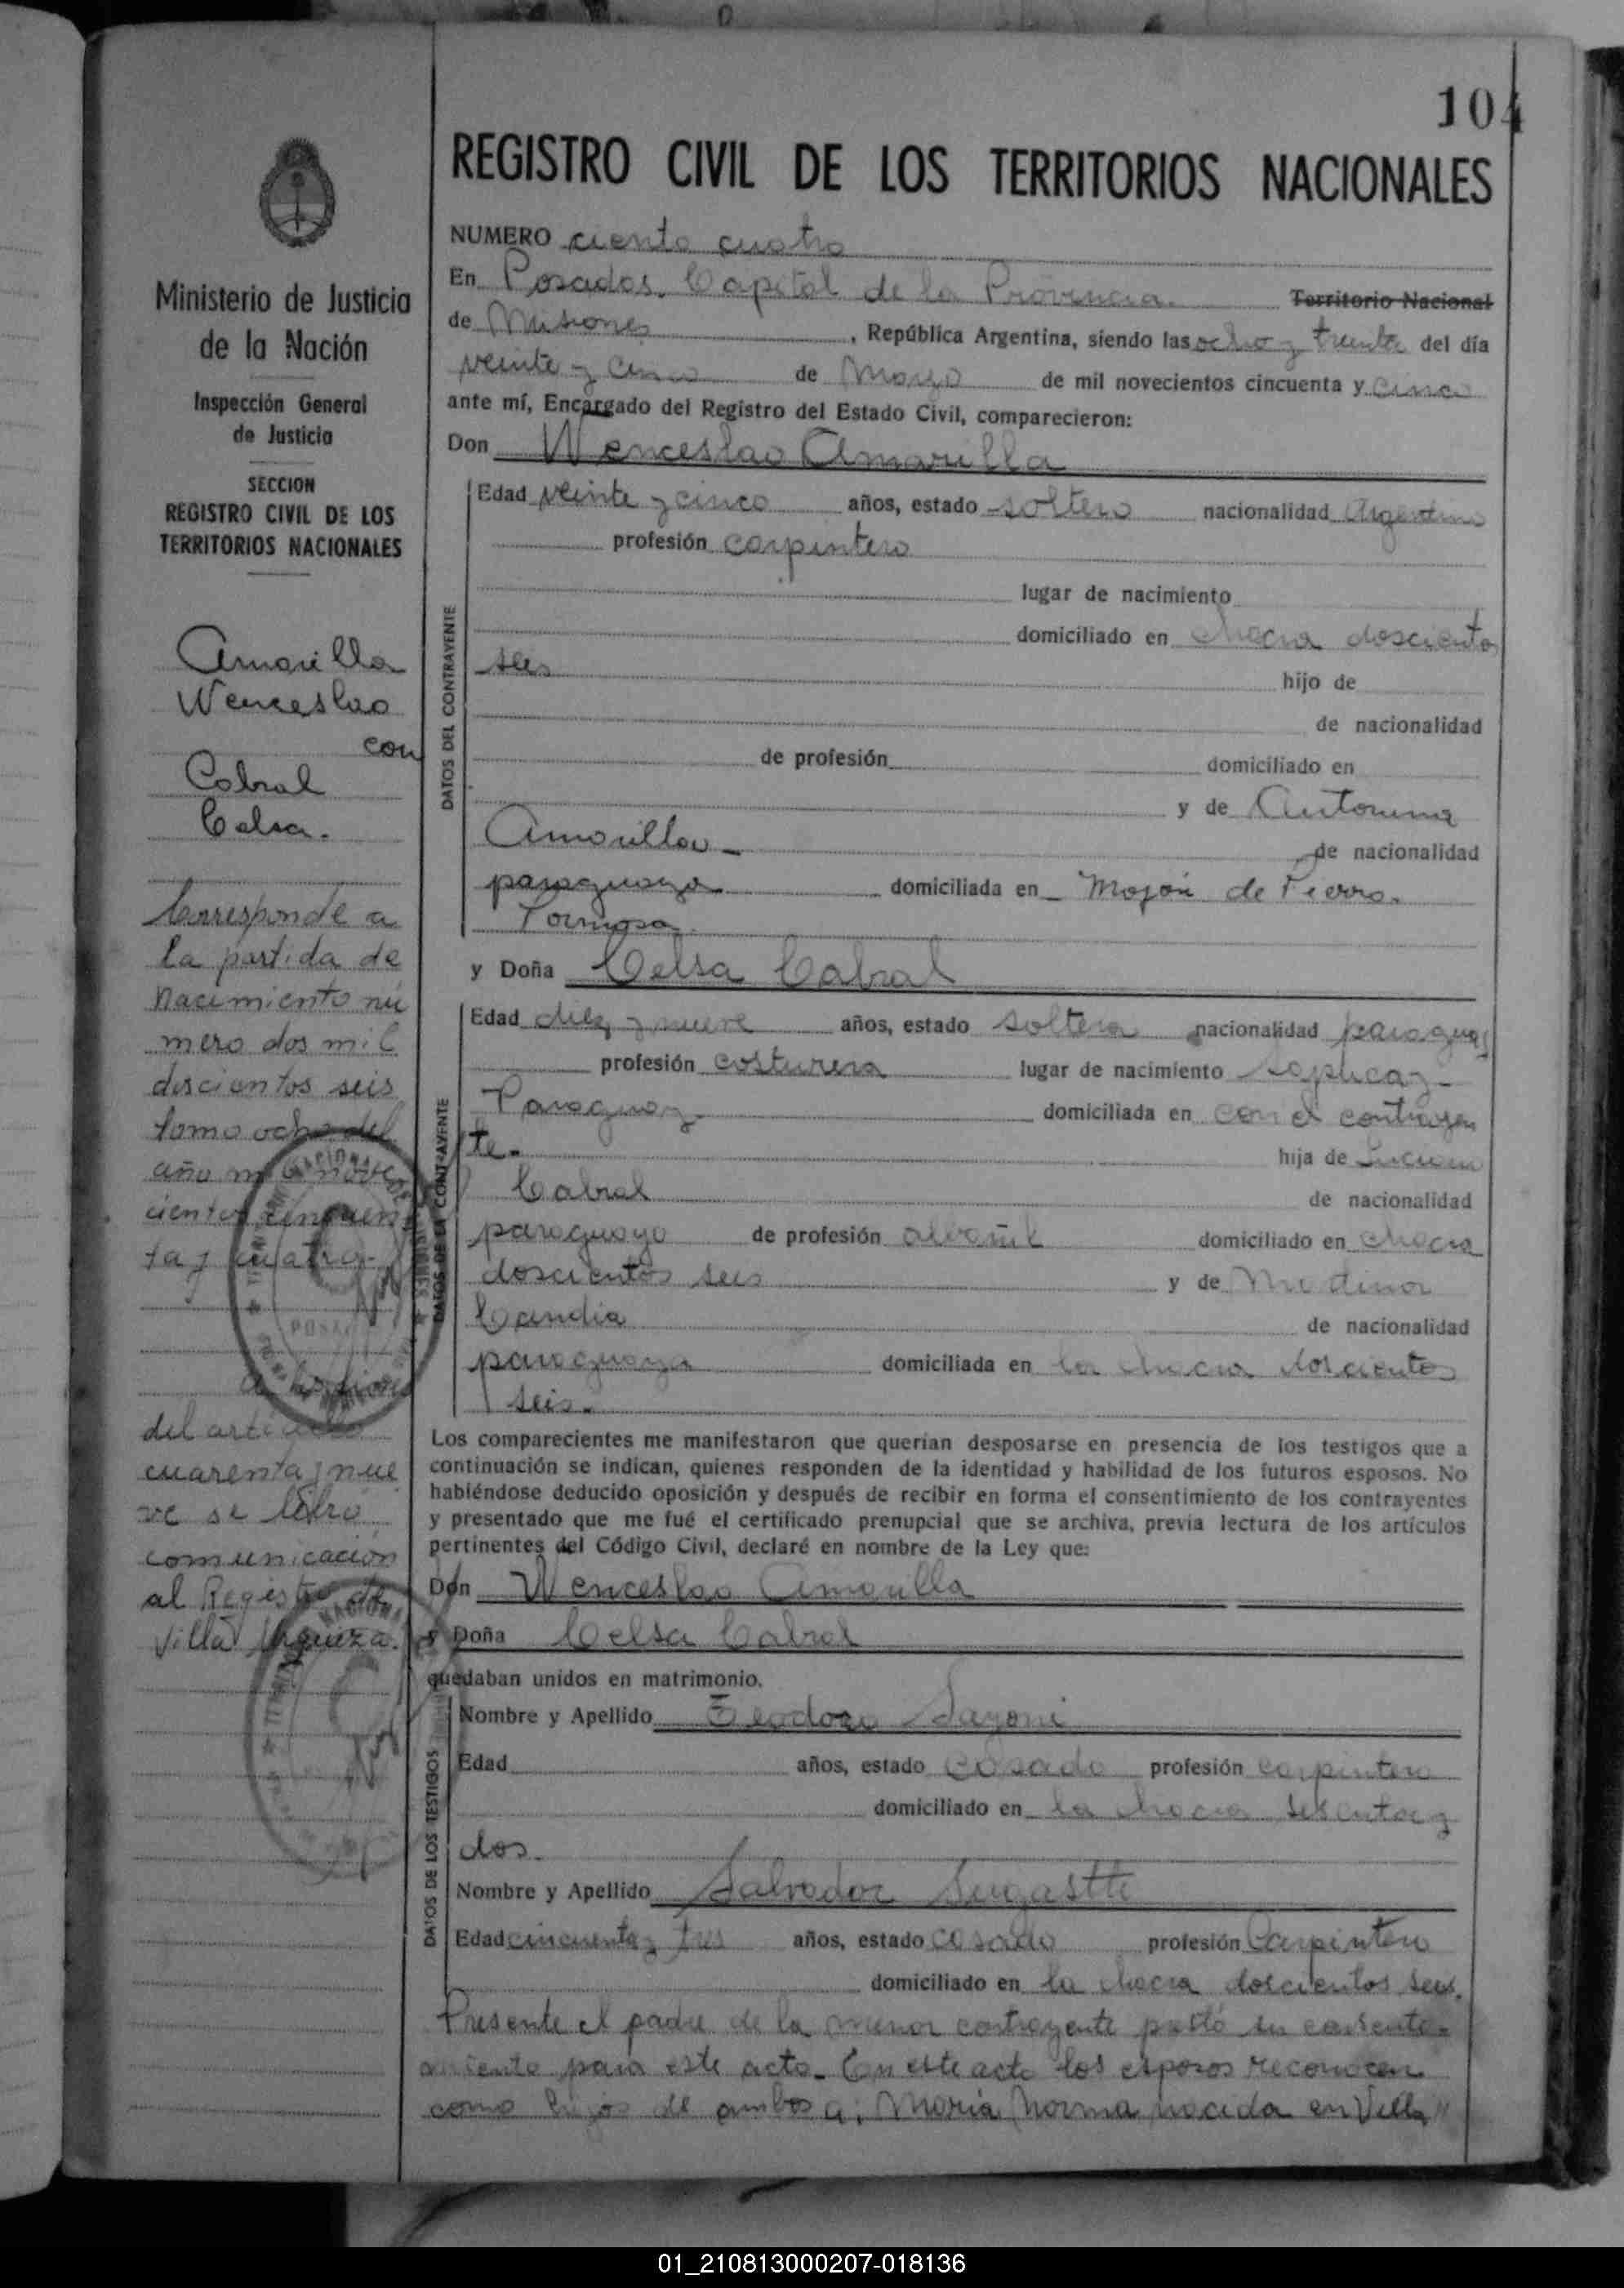 104
REGISTRO CIVIL DE LOS TERRITORIOS NACIONALES
Ministerio de Justicia
de la Nación
Inspección General
de Justicia
SECCION
REGISTRO CIVIL DE LOS
TERRITORIOS NACIONALES
Amarilla
Wenceslao
con
Cabral
Celsa.
Corresponde a
la partida de
nacimiento nú
mero dos mil
doscientos seis
tomo ocho del
año mil nove
cientos cincuen
ta y cuatro.
del artículo
cuarenta y nue
ve se libró
comunicación
al Registro de
Villa Urquiza.
NUMERO ciento cuatro
En Posadas, Capital de la Provincia. Territorio Nacional
de Misiones, República Argentina, siendo las ocho y treinta del día
veinte y cinco de Mayo de mil novecientos cincuenta y cinco
ante mí, Encargado del Registro del Estado Civil, comparecieron:
Don Wenceslao Amarilla
DATOS DEL CONTRAYENTE
Edad veinte y cinco años, estado soltero nacionalidad Argentino
profesión carpintero
lugar de nacimiento
domiciliado en chacra doscientos
seis
hijo de
de nacionalidad
de profesión domiciliado en
y de Antonina
Amarilla - de nacionalidad
paraguaya domiciliada en Mojón de Fierro.
Formosa.
y Doña Celsa Cabral
DATOS DE LA CONTRAYENTE
Edad diez y nueve años, estado soltera nacionalidad paraguay
profesión costurera lugar de nacimiento
Paraguay. domiciliada en con el contrayen
te.
hija de Luciano
Cabral de nacionalidad
paraguayo de profesión albañil domiciliado en chacra
doscientos seis y de
Candia de nacionalidad
paraguaya domiciliada en la chacra doscientos
seis.
Los comparecientes me manifestaron que querían desposarse en presencia de los testigos que a
continuación se indican, quienes responden de la identidad y habilidad de los futuros esposos. No
habiéndose deducido oposición y después de recibir en forma el consentimiento de los contrayentes
y presentado que me fué el certificado prenupcial que se archiva, previa lectura de los artículos
pertinentes del Código Civil, declaré en nombre de la Ley que:
Don Wenceslao Amarilla
y Doña Celsa Cabral
quedaban unidos en matrimonio.
DATOS DE LOS TESTIGOS
Nombre y Apellido Teodoro
Edad años, estado casado profesión carpintero
domiciliado en la chacra sesenta y
dos.
Nombre y Apellido Salvador
Edad cincuenta y tres años, estado casado profesión Carpintero
domiciliado en la chacra doscientos seis.
Presente el padre de la menor contrayente prestó su consenti-
miento para este acto. En este acto los esposos reconocen
como hijos de ambos a: María Norma nacida en Villa
01_210813000207-018136